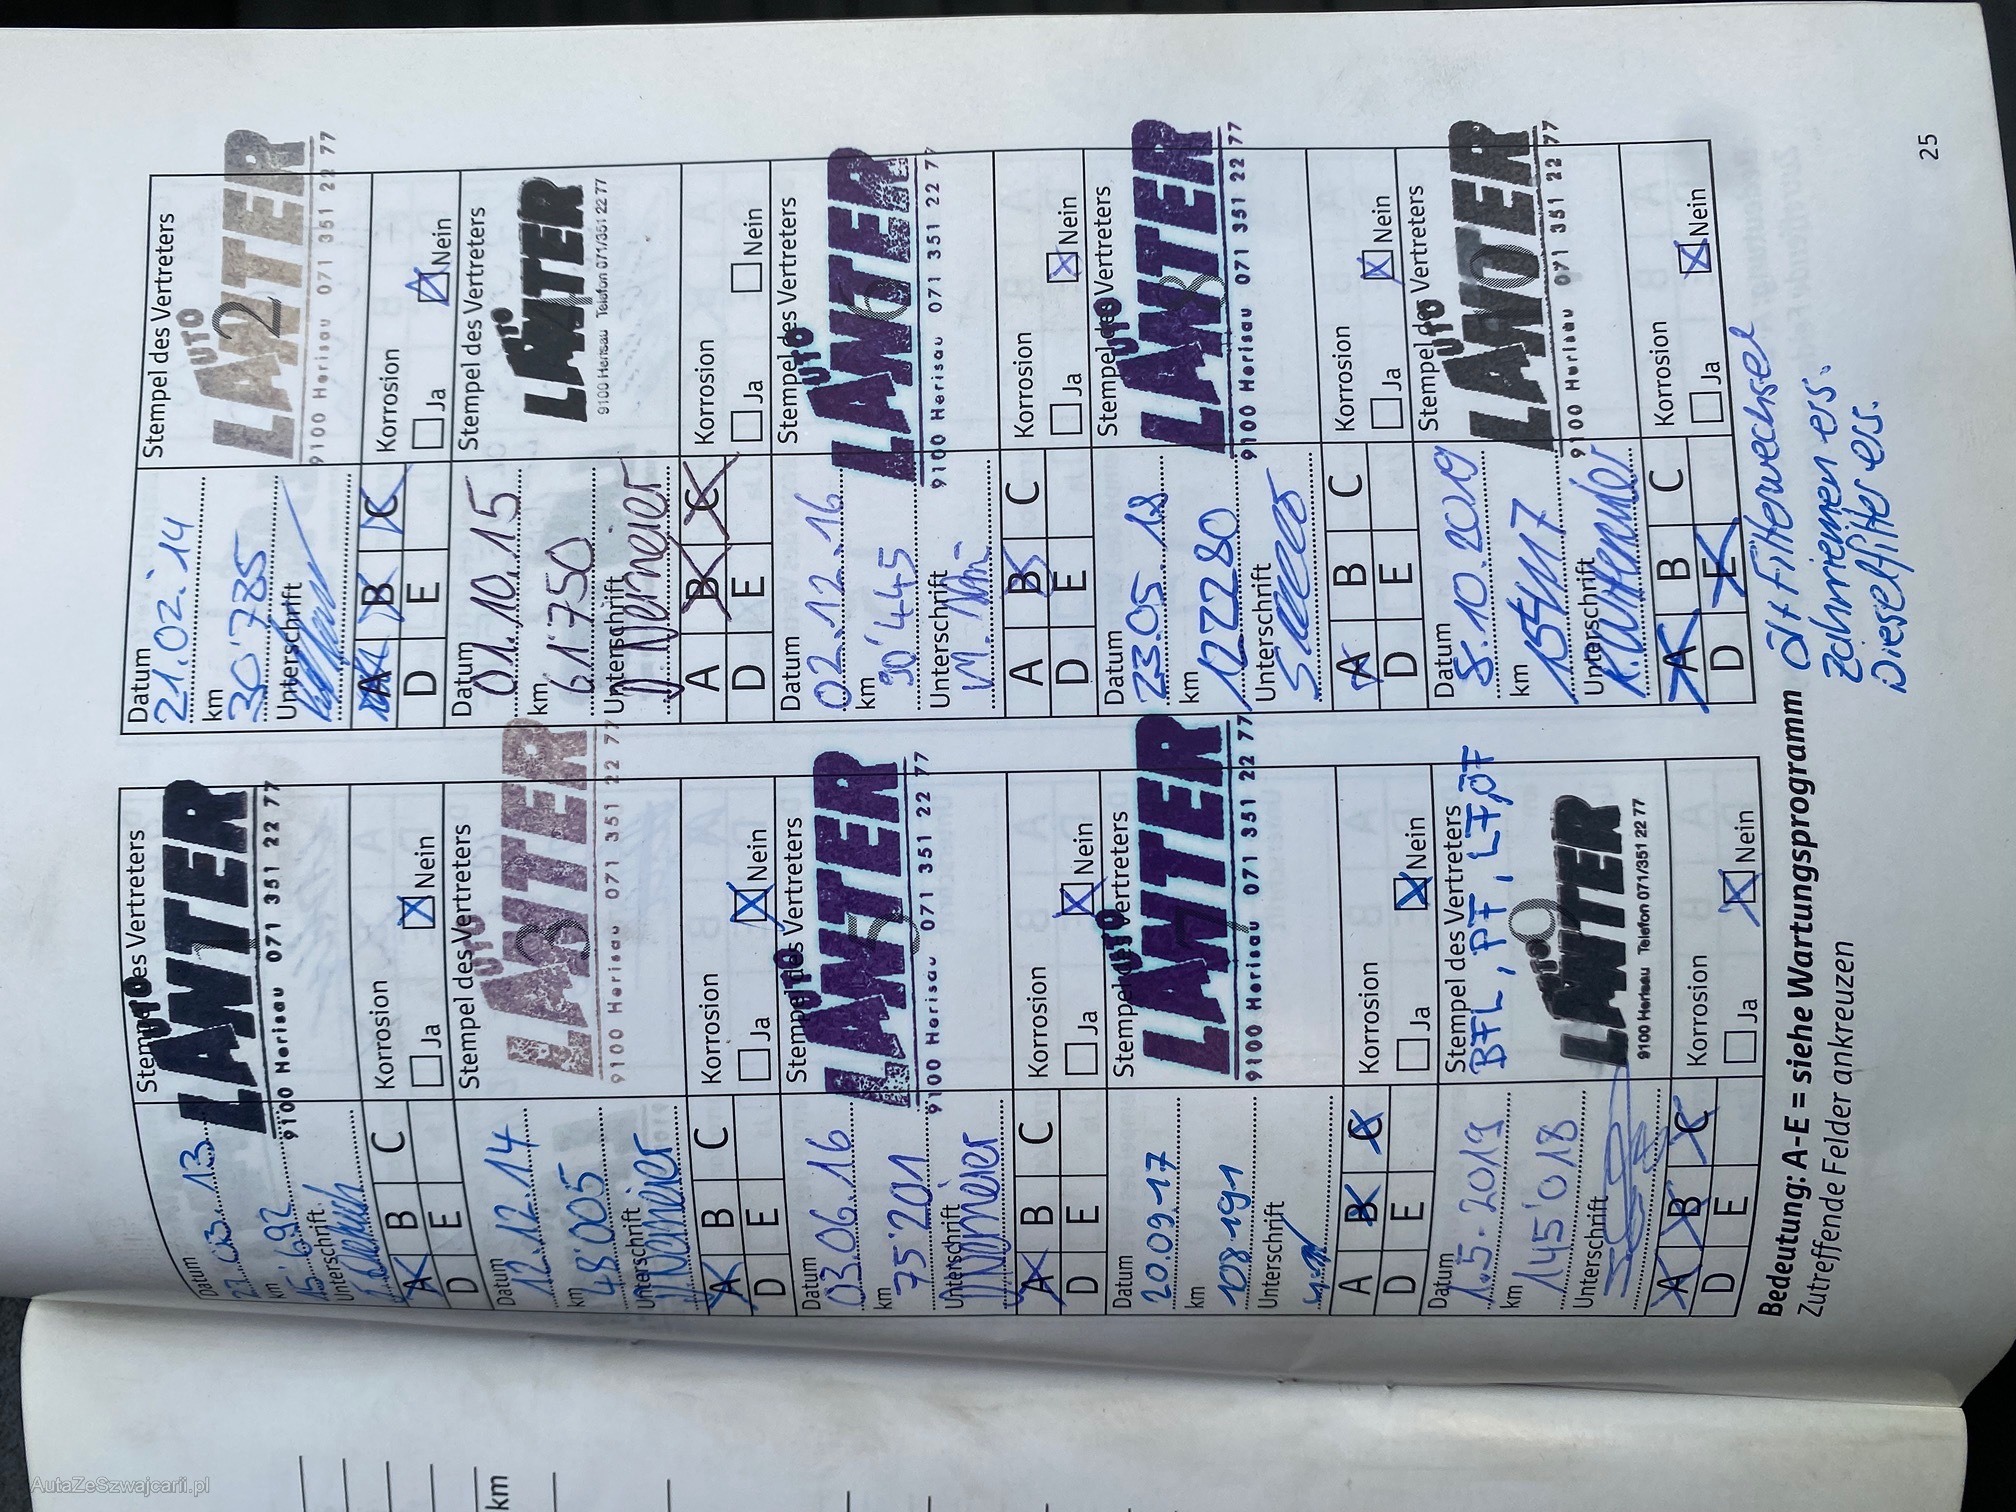 Datum
22.03.13
km
15'692
Unterschrift
Stempel des Vertreters
AUTO
LANTER
9100 Herisau 071 351 22 77
1
A B C
D E
Korrosion
Ja Nein
Datum
21.02.'14
km
30'785
Unterschrift
Stempel des Vertreters
AUTO
LANTER
9100 Herisau 071 351 22 77
2
A B C
D E
Korrosion
Ja Nein
Datum
12.12.14
km
48'005
Unterschrift
Stempel des Vertreters
AUTO
LANTER
9100 Herisau 071 351 22 77
3
A B C
D E
Korrosion
Ja Nein
Datum
01.10.15
km
61'750
Unterschrift
Stempel des Vertreters
AUTO
LANTER
9100 Herisau Telefon 071/351 22 77
4
A B C
D E
Korrosion
Ja Nein
Datum
03.06.16
km
75'201
Unterschrift
Stempel des Vertreters
AUTO
LANTER
9100 Herisau 071 351 22 77
5
A B C
D E
Korrosion
Ja Nein
Datum
02.12.16
km
90'445
Unterschrift
Stempel des Vertreters
AUTO
LANTER
9100 Herisau 071 351 22 77
6
A B C
D E
Korrosion
Ja Nein
Datum
20.09.17
km
108191
Unterschrift
Stempel des Vertreters
AUTO
LANTER
9100 Herisau 071 351 22 77
7
A B C
D E
Korrosion
Ja Nein
Datum
23.05.18
km
122280
Unterschrift
Stempel des Vertreters
AUTO
LANTER
9100 Herisau 071 351 22 77
8
A B C
D E
Korrosion
Ja Nein
Datum
1.5.2019
km
145'018
Unterschrift
Stempel des Vertreters
BFL, PF, LF, ÖF
AUTO
LANTER
9100 Herisau Telefon 071/351 22 77
9
A B C
D E
Korrosion
Ja Nein
Datum
8.10.2019
km
Unterschrift
Stempel des Vertreters
AUTO
LANTER
9100 Herisau 071 351 22 77
10
A B C
D E
Korrosion
Ja Nein
Bedeutung: A-E = siehe Wartungsprogramm
Zutreffende Felder ankreuzen
Öl+Filterwechsel
Zahnriemen ers.
Dieselfilter ers.
25
km
AutaZeSzwajcarii.pl